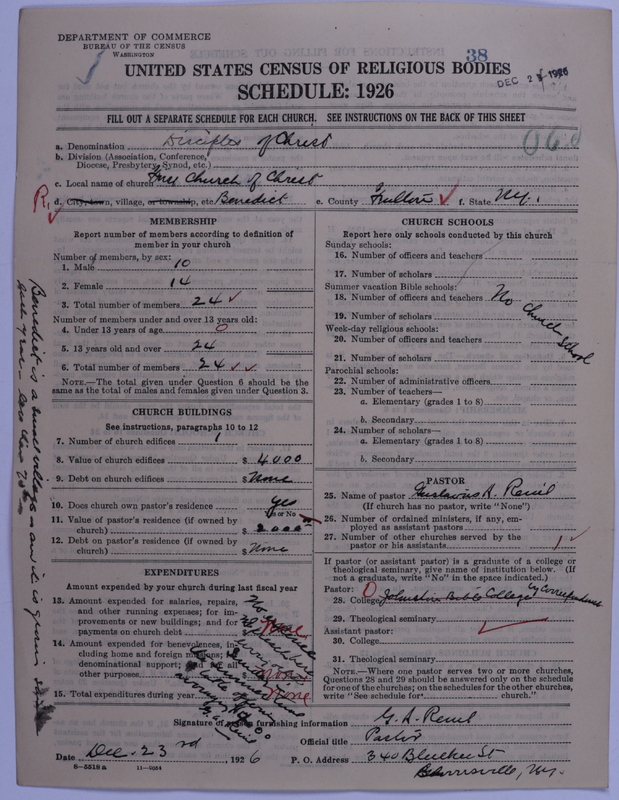 DEPARTMENT OF COMMERCE
BUREAU OF THE CENSUS
WASHINGTON
38
DEC 2 1926
UNITED STATES CENSUS OF RELIGIOUS BODIES
SCHEDULE: 1926
FILL OUT A SEPARATE SCHEDULE FOR EACH CHURCH. SEE INSTRUCTIONS ON THE BACK OF THIS SHEET
a. Denomination Disciples of Christ
b. Division (Association, Conference,
Diocese, Presbytery, Synod, etc.)
c. Local name of church Church of Christ
d. City, town, village, or township, etc. Benedict e. County Fulton f. State N.Y.
MEMBERSHIP
Report number of members according to definition of
member in your church
Number of members, by sex:
1. Male 10
2. Female 14
3. Total number of members 24
Number of members under and over 13 years old:
4. Under 13 years of age 0
5. 13 years old and over 24
6. Total number of members 24
NOTE.—The total given under Question 6 should be
the same as the total of males and females given under Question 3.
CHURCH BUILDINGS
See instructions, paragraphs 10 to 12
7. Number of church edifices 1
8. Value of church edifices $ 4000
9. Debt on church edifices $ None
10. Does church own pastor's residence Yes
Yes or No
11. Value of pastor's residence (if owned by
church) $ 2000
12. Debt on pastor's residence (if owned by
church) $ None
EXPENDITURES
Amount expended by your church during last fiscal year
13. Amount expended for salaries, repairs,
and other running expenses; for im-
provements or new buildings; and for
payments on church debt
14. Amount expended for benevolences, in-
cluding home and foreign missions;
denominational support; and all
other purposes None
15. Total expenditures during year None
CHURCH SCHOOLS
Report here only schools conducted by this church
Sunday schools:
16. Number of officers and teachers
17. Number of scholars
Summer vacation Bible schools:
18. Number of officers and teachers No Church School
19. Number of scholars
Week-day religious schools:
20. Number of officers and teachers
21. Number of scholars
Parochial schools:
22. Number of administrative officers
23. Number of teachers—
a. Elementary (grades 1 to 8)
b. Secondary
24. Number of scholars—
a. Elementary (grades 1 to 8)
b. Secondary
PASTOR
25. Name of pastor Gustavus A.
(If church has no pastor, write "None")
26. Number of ordained ministers, if any, em-
ployed as assistant pastors
27. Number of other churches served by the
pastor or his assistants 1
If pastor (or assistant pastor) is a graduate of a college or
theological seminary, give name of institution below. (If
not a graduate, write "No" in the space indicated.)
Pastor:
28. College Johnson Bible College by Correspondence
29. Theological seminary
Assistant pastor:
30. College
31. Theological seminary
NOTE.—Where one pastor serves two or more churches,
Questions 28 and 29 should be answered only on the schedule
for one of the churches; on the schedules for the other churches,
write "See schedule for church."
Signature of person furnishing information G. A.
Official title Pastor
Date Dec. 23rd, 1926 P. O. Address 340 Bleecker St
N.Y.
6-5518a 11-9034
Benedict is a small village